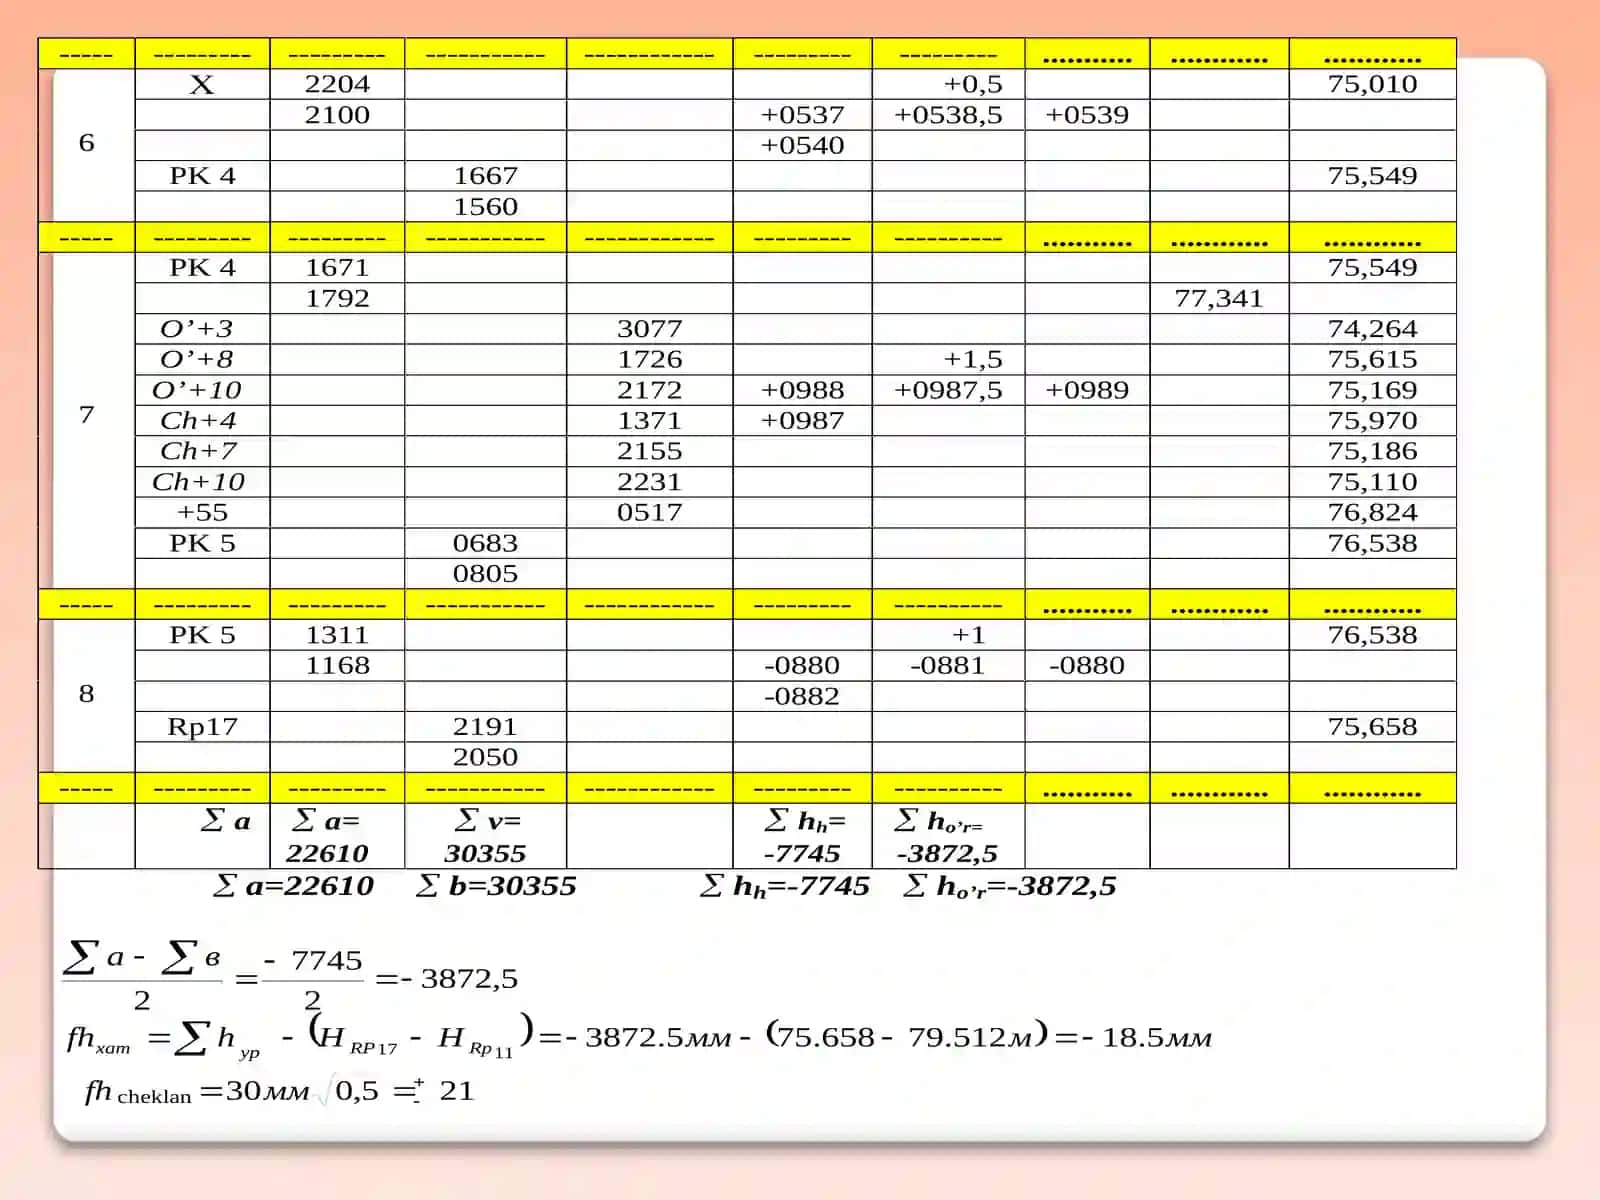 ----- --------- --------- ----------- ------------ --------- --------- ........... ............ ............
X 2204 +0,5 75,010
2100 +0537 +0538,5 +0539
6
+0540
PK 4 1667 75,549
1560
----- --------- --------- ----------- ------------ --------- ---------- ........... ............ ............
PK 4 1671 75,549
1792 77,341
O’+3 3077 74,264
O’+8 1726 +1,5 75,615
O’+10 2172 +0988 +0987,5 +0989 75,169
7 Ch+4 1371 +0987 75,970
Ch+7 2155 75,186
Ch+10 2231 75,110
+55 0517 76,824
PK 5 0683 76,538
0805
----- --------- --------- ----------- ------------ --------- ---------- ........... ............ ............
PK 5 1311 +1 76,538
1168 -0880 -0881 -0880
8 -0882
Rp17 2191 75,658
2050
----- --------- --------- ----------- ------------ --------- ---------- ........... ............ ............
∑ a ∑ a= ∑ v= ∑ hₕ= ∑ hₒ’ᵣ=
22610 30355 -7745 -3872,5
∑ a=22610 ∑ b=30355 ∑ hₕ=-7745 ∑ hₒ’ᵣ=-3872,5
∑ а - ∑ в / 2 = - 7745 / 2 = - 3872,5
fh хат = ∑ h ур - (H RP17 - H Rp11) = - 3872.5мм - (75.658 - 79.512м) = - 18.5мм
fh cheklan = 30мм √0,5 = +- 21